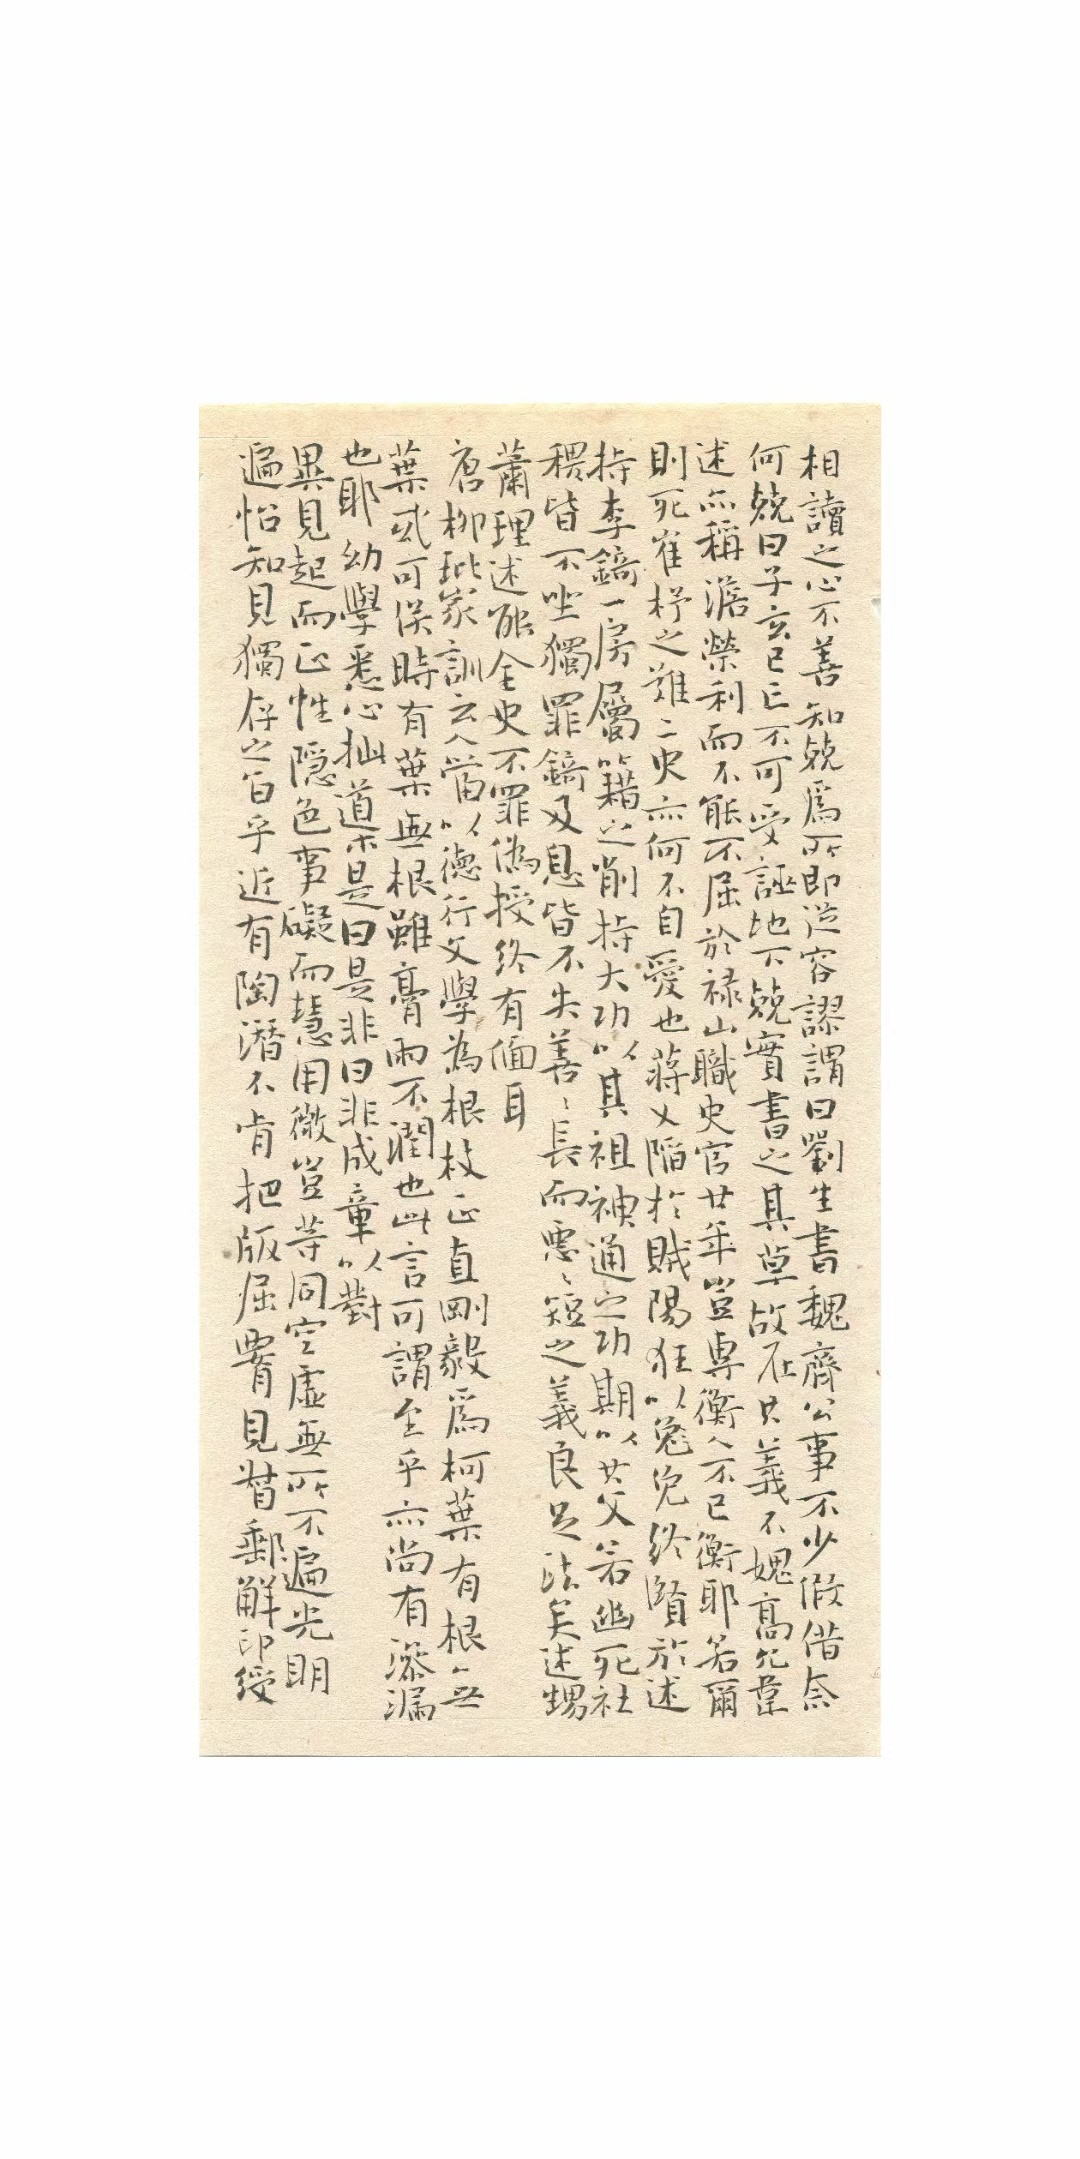 相讀之心不善知兢爲所即從容謬謂曰劉生書魏齊公事不少假借奈
何兢曰子玄已亡不可受誣地下兢實書之其草故在其義不媿高允韋
述亦稱澹榮利而不能不屈於祿山職史官廿年豈專衡人不已衡耶若爾
則死崔杼之難二史亦何不自愛也蔣乂陷於賊陽狂以免免終賢於述
持李錡一房屬籍之削持大功以其祖神通之功期以其父若幽死社
稷皆不坐獨罪錡及息皆不失善〻長而惡〻短之義良足法矣述甥
蕭理述能全史不罪僞授終有偭耳
唐柳玭家訓云人當以德行文學為根枝正直剛毅爲柯葉有根無
葉或可俟時有葉無根雖膏雨不潤也此言可謂至乎亦尚有滲漏
也耶幼學悉心拙道眾是曰是非曰非成章以對
異見起而正性隱色事礙而慧用微豈等同空虛無所不遍光明
遍怡知見獨存之旨乎近有陶潛不肯把版屈腰見督郵解印綬